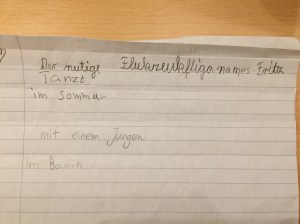 Der mutige Flukzeukfliga names Fritz
Tanzt
im sommar
mit einem Jungen
im Bauch